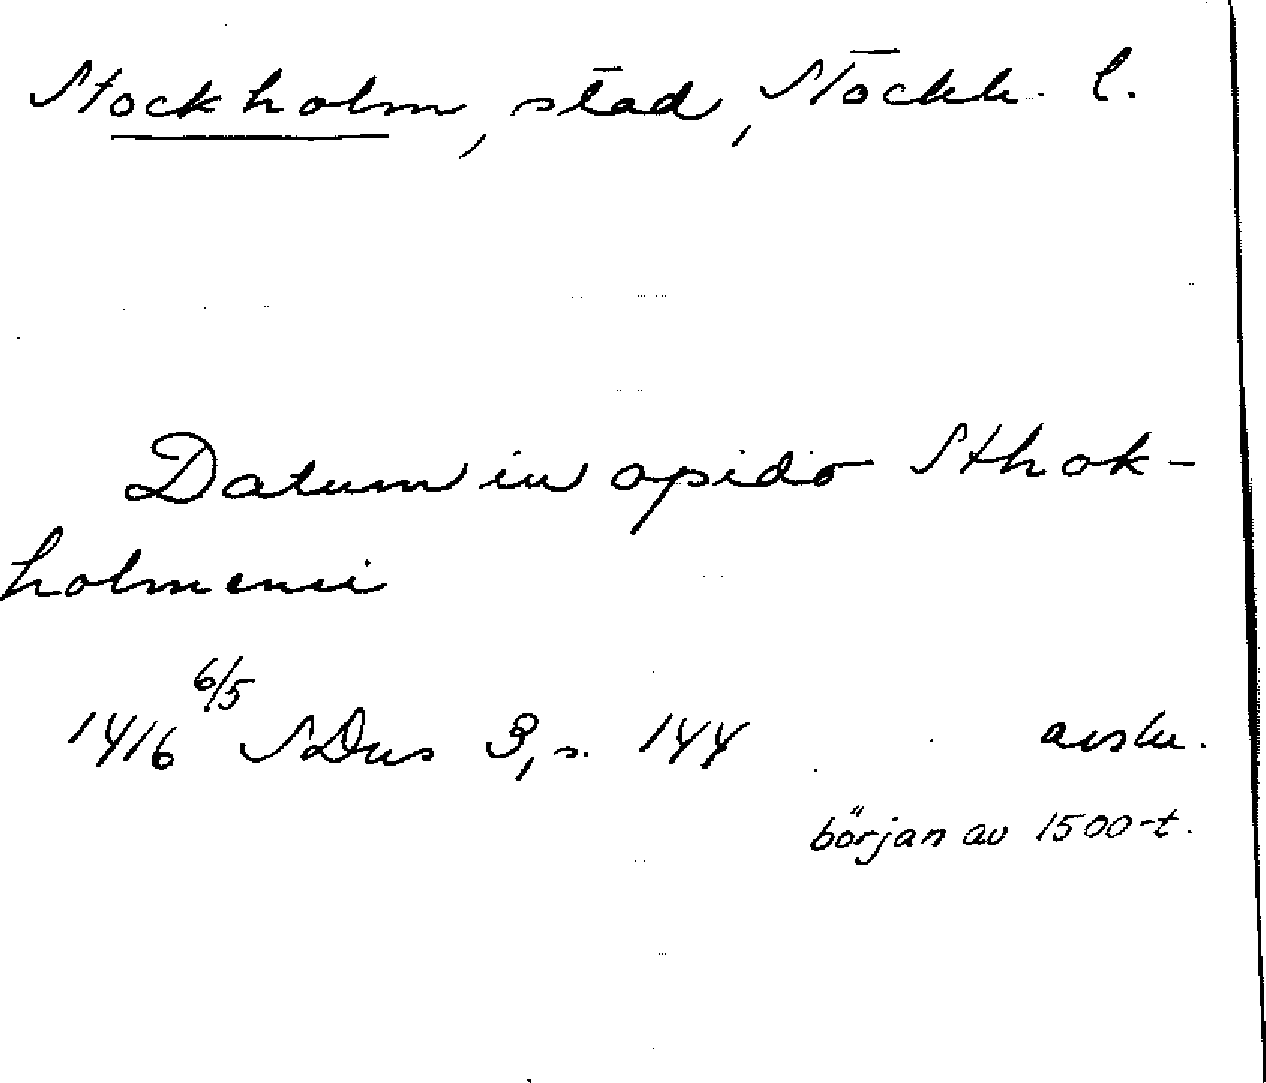 Stockholm, stad, Stockh. l.
Datum in opido Sthok-
holmensi
1416 6/5 SDns 3, s. 144 avskr.
början av 1500-t.